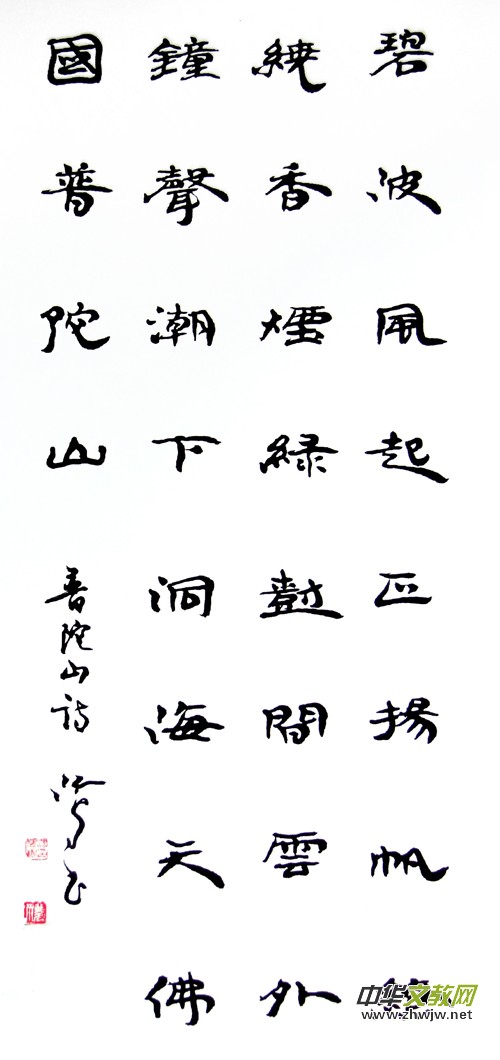 碧波風起正揚帆
繞香煙緑樹間雲外
鐘聲潮下洞海天佛
國普陀山
普陀山詩
中华文教网
www.zhwjw.net